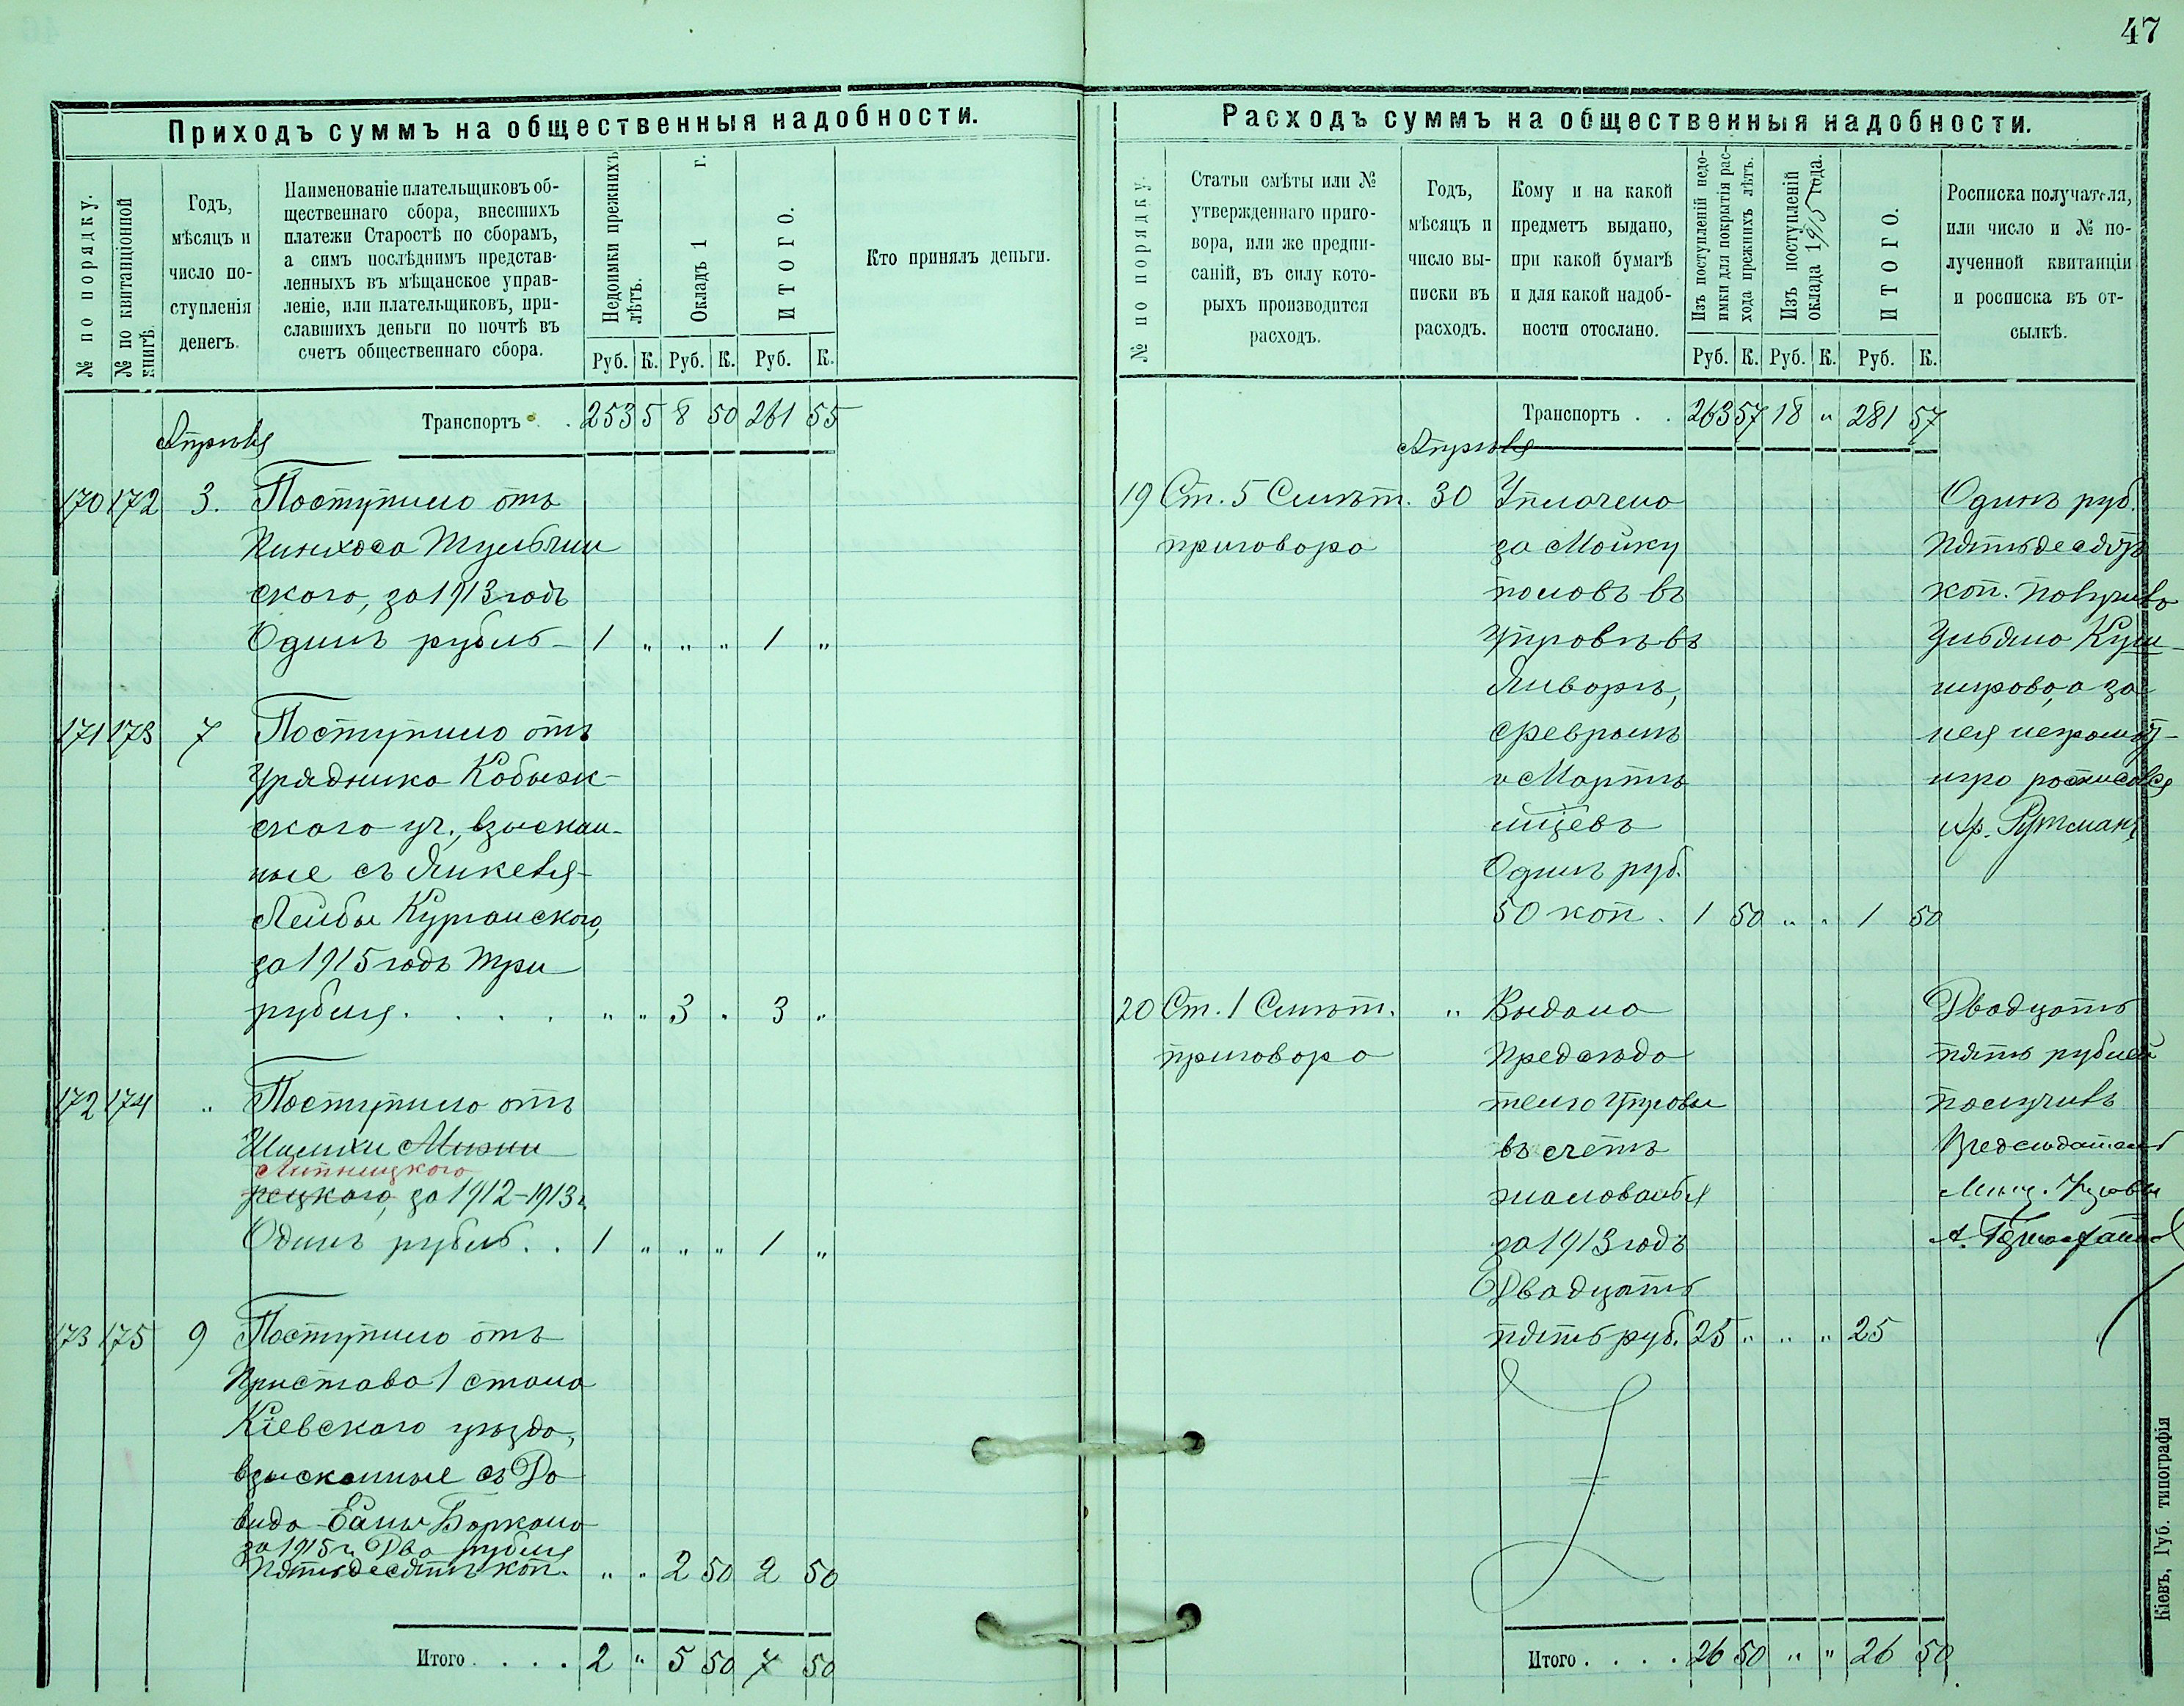 47
Приходъ суммъ на общественныя надобности.
№ по порядку.
№ по квитанціонной
книгѣ.
Годъ,
мѣсяцъ и
число по-
ступленія
денегъ.
Наименованіе плательщиковъ об-
щественнаго сбора, внесшихъ
платежи Старостѣ по сборамъ,
а симъ послѣднимъ представ-
ленныхъ въ мѣщанское управ-
леніе, или плательщиковъ, при-
славшихъ деньги по почтѣ въ
счетъ общественнаго сбора.
Недоимки прежнихъ
лѣтъ.
Окладъ 1 г.
ИТОГО.
Кто принялъ деньги.
Руб. К. Руб. К. Руб. К.
Транспортъ . . 253 5 8 50 261 55
Апрѣля
170 172 3. Поступило отъ
Пинхоса Тульчин
скаго, за 1913 годъ
Одинъ рубль - 1 " " " 1 "
171 173 7 Поступило отъ
Урядника Кобыж-
скаго уч., взыскан-
ные съ Янкеля-
Лейбы Курганскаго,
за 1915 годъ три
рубля . . . . " " 3 " 3 "
172 174 " Поступило отъ
Шлихи Мизни
Липницкого
рецкаго, за 1912-1913 г.
Одинъ рубль . . 1 " " " 1 "
173 175 9 Поступило отъ
Пристава 1 стана
Кіевскаго уѣзда,
взысканные съ До
вида Боркана
за 1915 г. Два рубля
Пятьдесятъ коп. " " 2 50 2 50
Итого . . . . 2 " 5 50 7 50
Расходъ суммъ на общественныя надобности.
№ по порядку.
Статьи смѣты или №
утвержденнаго приго-
вора, или же предпи-
саній, въ силу кото-
рыхъ производится
расходъ.
Годъ,
мѣсяцъ и
число вы-
писки въ
расходъ.
Кому и на какой
предметъ выдано,
при какой бумагѣ
и для какой надоб-
ности отослано.
Изъ поступленій недо-
имки для покрытія рас-
хода прежнихъ лѣтъ.
Изъ поступленій
оклада 1915 года.
ИТОГО.
Росписка получателя,
или число и № по-
лученной квитанціи
и росписка въ от-
сылкѣ.
Руб. К. Руб. К. Руб. К.
Транспортъ . . 263 57 18 " 281 57
Апрѣля
19 Ст. 5 Смѣт. 30 Уплочено Одинъ руб.
приговора за Мойку Пятьдесятъ
половъ въ коп. получила
Управѣ въ Ульяна Куш-
Январѣ, нирова, а за
Февралѣ нея неграмот-
и Мартѣ ную росписался
м-цевъ Ар. Рутман
Одинъ руб.
50 коп. 1 50 " " 1 50
20 Ст. 1 Смѣт. " Выдано Двадцать
приговора Предсѣда пять рублей
телю Управы получилъ
въ счетъ Предсѣдатель
жалованья Мѣщ. Управы
за 1913 годъ
Двадцать
пять руб. 25 " " " 25
Итого . . . . 26 50 " " 26 50
Кіевъ, Губ. типографія